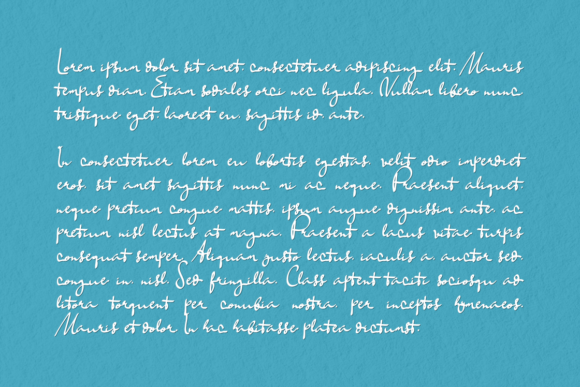 Lorem ipsum dolor sit amet, consectetuer adipiscing elit. Mauris
tempus diam. Etiam sodales orci nec ligula. Nullam libero nunc
tristique eget laoreet eu, sagittis id, ante.
In consectetuer lorem eu lobortis egestas, velit odio imperdiet
eros, sit amet sagittis nunc mi ac neque. Praesent aliquet,
neque pretium congue mattis, ipsum augue dignissim ante, ac
pretium nisl lectus at magna. Praesent a lacus vitae turpis
consequat semper. Aliquam justo lectus, iaculis a, auctor sed,
congue in, nisl. Sed fringilla. Class aptent taciti sociosqu ad
litora torquent per conubia nostra, per inceptos hymenaeos.
Mauris et dolor. In hac habitasse platea dictumst.